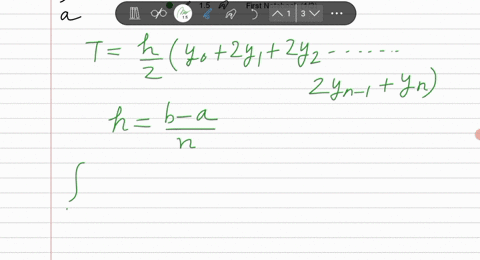 1.5 First N
1 3
a
T = h/2 (y₀ + 2y₁ + 2y₂ .......
2yₙ₋₁ + yₙ)
h = b-a/n
∫